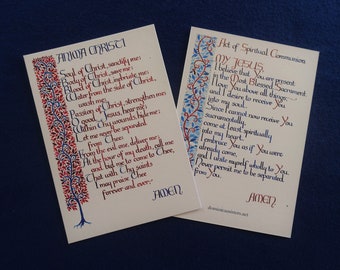 ANIMA CHRISTI
Soul of Christ, sanctify me;
Body of Christ, save me;
Blood of Christ, inebriate me;
Water from the side of Christ,
wash me;
Passion of Christ, strengthen me;
O good Jesus, hear me;
Within Thy wounds, hide me;
let me never be separated
from Thee;
From the evil one, deliver me;
At the hour of my death, call me
and bid me to come to Thee,
That with Thy saints
I may praise Thee
forever and ever.
AMEN
Act of Spiritual Communion
MY JESUS,
I believe that You are present
in the Most Blessed Sacrament.
I love You above all things,
and I desire to receive You
into my soul.
Since I cannot now receive You
sacramentally,
come at least spiritually
into my heart.
I embrace You as if You were
already come,
and I unite myself wholly to You.
Never permit me to be separated
from You.
AMEN